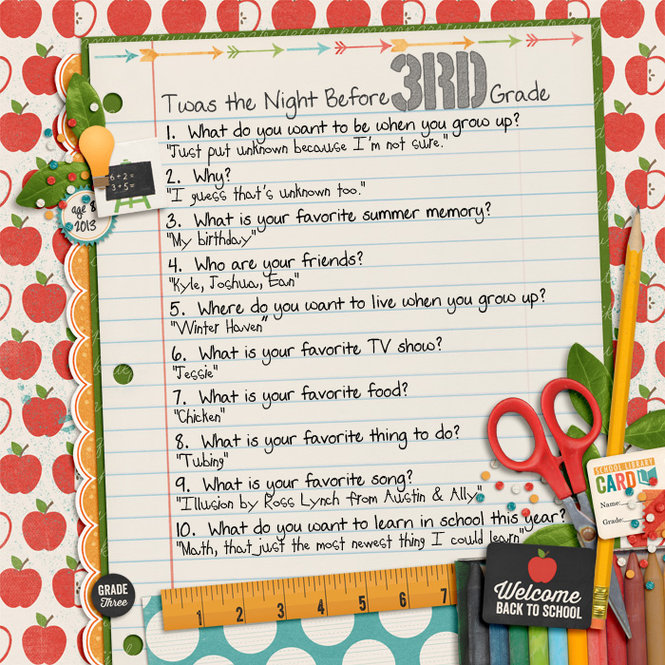 Twas the Night Before 3RD Grade
1. What do you want to be when you grow up?
"Just put unknown because I'm not sure."
2. Why?
"I guess that's unknown too."
3. What is your favorite summer memory?
"My birthday"
4. Who are your friends?
"Kyle, Joshua, Ean"
5. Where do you want to live when you grow up?
"Winter Haven"
6. What is your favorite TV show?
"Jessie"
7. What is your favorite food?
"Chicken"
8. What is your favorite thing to do?
"Tubing"
9. What is your favorite song?
"Illusion by Ross Lynch from Austin & Ally"
10. What do you want to learn in school this year?
"Math, that just the most newest thing I could learn"
6+2=
3+5=
age 8
2013
SCHOOL LIBRARY
CARD
Name:
Grade:
GRADE
Three
1 2 3 4 5 6 7
Welcome
BACK TO SCHOOL